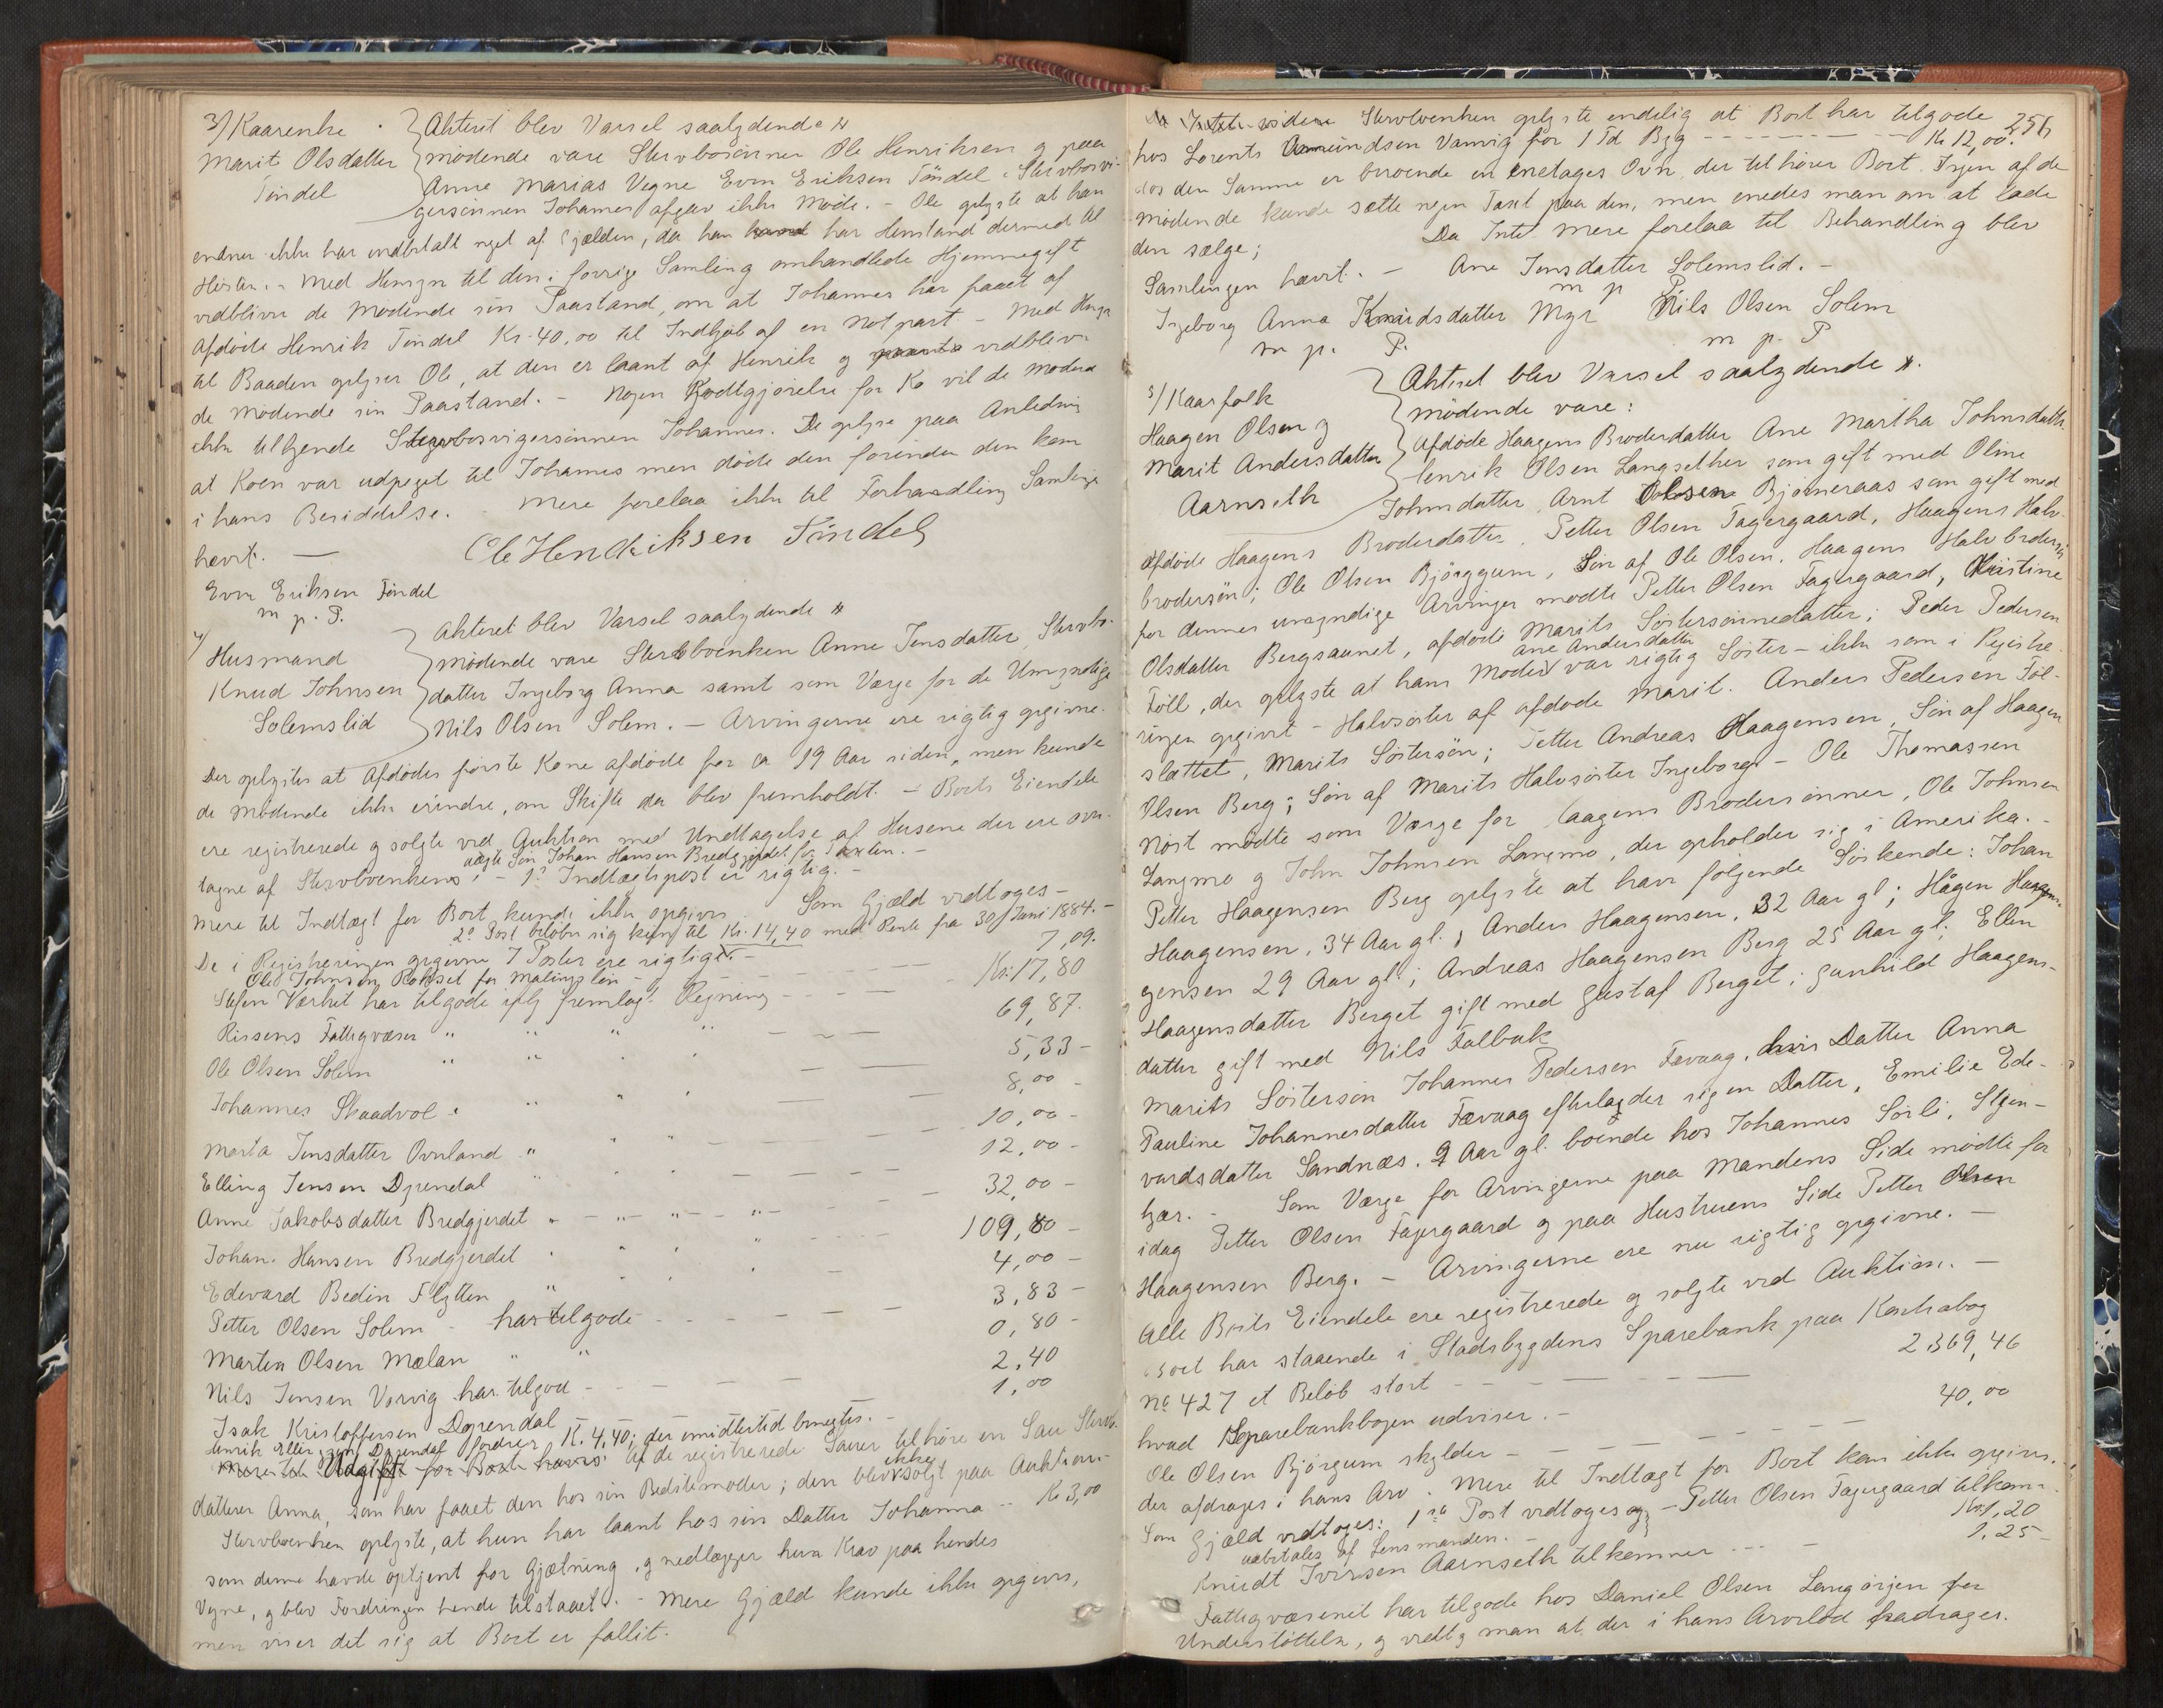 3/ Kaarenke
Marit Olsdatter
Tøndel
Akteret blev Varsel saalydende //
mødende vare Stervbosønnen Ole Henriksen og paa
Anne Marias Vegne Even Eriksen Tøndel. Stervbosvi-
gersønnen Johannes afgav ikke Møde. - Ole oplyste at han
endnu ikke har indbetalt noget af Gjælden, da han har Henstand dermed til
Høsten. - Med Hensyn til den i forrige Samling omhandlede Hjemmegift
vedbliver de Mødende sin Paastand, om at Johannes har faaet af
Afdøde Henrik Tøndel Kr. 40,00 til Indkjøb af en Notpart - Med Hensyn
til Baaden oplyser Ole, at den er laant af Henrik og vedbliver
de Mødende sin Paastand. - Nogen Godtgjørelse for Ko vil de Mødende
ikke tilkjende Stervbosvigersønnen Johannes. De oplyse paa Anledning
at Koen var udpeget til Johannes men døde den forinden den kom
i hans Besiddelse. Mere forelaa ikke til Forhandling Samlingen
hævt. —
Ole Hendriksen Tindel
Even Eriksen Tøndel
m. p. P.
4/
Husmand
Knud Johnsen
Solemslid
Akteret blev Varsel saalydende //
mødende vare Stervboenken Anne Jensdatter, Stervbo-
datter Ingeborg Anna samt som Værge for de Umyndige
Nils Olsen Solem. - Arvingerne ere rigtig opgivne.
Der oplystes at Afdødes første Kone afdøde for ca 19 Aar siden, men kunde
de Mødende ikke erindre, om Skifte da blev fremholdt. - Boets Eiendele
ere registrerede og solgte ved Auktion med Undtagelse af Husene der ere over-
tagne af Stervboenkens uægte Søn Johan Hansen Bredgjerdet for Taxten. -
- 1ste Indtægtspost er rigtig. -
Mere til Indtægt for Boet kunde ikke opgives. Som Gjæld vedtoges -
2de Post beløber sig kun til Kr. 14,40 med Rente fra 30 Juni 1884. -
De i Registreringen opgivne 7 Poster ere rigtige. -
Ole Johnsen Rokset for Malingsløn - 7,09.
Stefen Værket har tilgode iflg fremlagt Regning - - - - Kr. 17,80
Rissens Fattigvæsen " " " " - - 69,87.
Ole Olsen Solem " " 5,33 -
Johannes Skaadvol " " 8,00 -
Marta Jensdatter Ovnland " 10,00 -
Elling Jensen Dyrendal 12,00 -
Anne Jakobsdatter Bredgjerdet " - " - " - " 32,00 -
Johan Hansen Bredgjerdet 109,80 -
Edevard Bedin Flytten " 4,00 -
Petter Olsen Solem - har tilgode - - - - 3,83 -
Marten Olsen Mælan " " 0,80 -
Nils Jensen Vorvig har tilgode - 2,40
Isak Kristoffersen Dyrendal 1,00
Henrik Ellingsen Dyrendal fordrer K. 4,40; der imidlertid benegtes. -
Mere til Udgift for Boet haves Af de registrerede Sauer tilhøre en Sau Stervbo-
datteren Anna, som har faaet den hos sin Bedstemoder; den blev ikke solgt paa Auktionen -
Stervboenken oplyste, at hun har laant hos sin Datter Johanna - Kr 3,00
som denne havde optjent for Gjætning, og nedlægger hun Krav paa hendes
Vegne, og blev Fordringen hende tilstaaet. - Mere Gjæld kunde ikke opgives,
men viser det sig at Boet er fallit.
256
Stervboenken oplyste endelig at Boet har tilgode
hos Lorents Amundsen Vanvig for 1 Td Byg - - - - Kr 12,00.
Hos den Samme er beroende en enetages Ovn, der tilhører Boet. Ingen af de
mødende kunde sætte nogen Taxt paa den, men enedes man om at lade
den sælge; Da Intet mere forelaa til Behandling blev
Samlingen hævt. - Ane Jensdatter Solemslid. -
m p P.
Ingeborg Anna Knudsdatter Myr Nils Olsen Solem
m p. P. m p. P
5/ Kaarfolk
Haagen Olsen og
Marit Andersdatter
Aarnseth
Akteret blev Varsel saalydende //.
mødende vare:
Afdøde Haagens Broderdatter Ane Martha Johnsdatter
Henrik Olsen Langsether som gift med Oline
Johnsdatter, Arnt Olsen Bjørneraas som gift med
afdøde Haagens Broderdatter, Petter Olsen Fagergaard, Haagens Halv-
brodersøn; Ole Olsen Bjørggum, Søn af Ole Olsen, Haagens Halvbrodersøn
for dennes umyndige Arvinger mødte Petter Olsen Fagergaard, Kristine
Olsdatter Bergsaunet, afdøde Marits Søstersønnedatter; Peder Pedersen
Føll, der oplyste at hans Moder Ane Andersdatter var rigtig Søster - ikke som i Registre-
ringen opgivet - Halvsøster af afdøde Marit. Anders Pedersen Føl-
slettet, Marits Søstersøn; Petter Andreas Haagensen, Søn af Haagen
Olsen Berg; Søn af Marits Halvsøster Ingeborg - Ole Thomassen
Nøst mødte som Værge for Haagens Brodersønner, Ole Johnsen
Langmo og John Johnsen Langmo, der opholder sig i Amerika. -
Petter Haagensen Berg oplyste at have følgende Søskende: Johan
Haagensen, 34 Aar gl.; Anders Haagensen, 32 Aar gl; Hågen Haagen-
gensen 29 Aar gl.; Andreas Haagensen Berg 25 Aar gl; Ellen
Haagensdatter Berget gift med Gustaf Berget; Gunhild Haagens-
datter gift med Nils Falbuk
Marits Søstersøn Johannes Pedersen Fævaag, hvis Datter Anna
Pauline Johannesdatter Fævaag efterlagder sig en Datter, Emilie Ede-
vardsdatter Sandnæs. 9 Aar gl. boende hos Johannes Sørli, Stjen-
kjær. - Som Værge for Arvingerne paa Mandens Side mødte for
idag Petter Olsen Fagergaard og paa Hustruens Side Petter
Haagensen Berg. - Arvingerne ere nu rigtig opgivne. -
Alle Boets Eiendele ere registrerede og solgte ved Auktion. -
Boet har staaende i Stadsbygdens Sparebank paa Kontrabog
No 427 et Beløb stort - - - - - 2369,46
hvad Sparebankbogen udviser. -
Ole Olsen Bjørgum skylder - - - - - - 40,00
der afdrages i hans Arv. Mere til Indtægt for Boet kan ikke opgives.
Som Gjæld vedtoges: 1ste Post vedtoges og - Petter Olsen Fagergaard tilkom- Kr. 1,20
udbetales af Lensmanden. -
Knudt Iversen Aarnseth tilkommer - - - 1,25 -
Fattigvæsenet har tilgode hos Daniel Olsen Langørjen for
Understøttelse, og vedtog man at der i hans Arvelod fradrages.